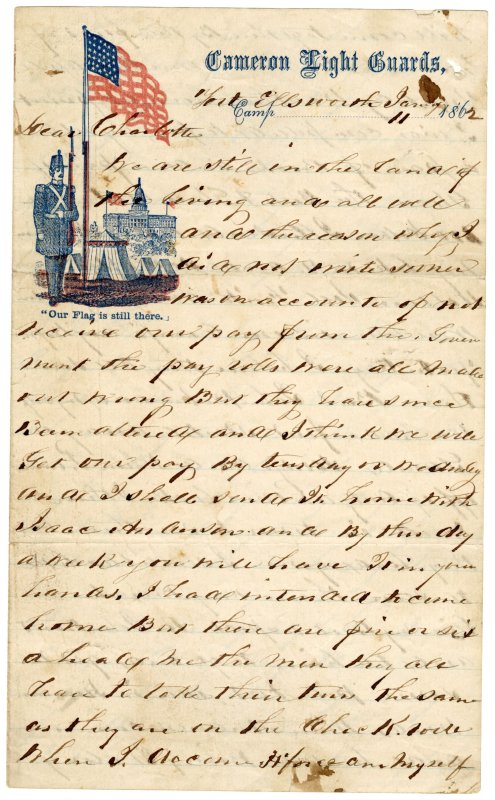 Cameron Light Guards,
Fort Ellsworth Jany
Camp 11 1862
Dear Charlotte
We are still in the Land of
the living and all well
and the reason why I
did not write sooner
was on accounte of not
"Our Flag is still there."
receive our pay from the Govern
ment the pay rolls were all made
out wrong But they have since
Been altered and I think we will
Get our pay By teusday or wednsday
and I shall send It home with
Isaac Anderson and By this day
a week you will have It in your
hands. I had intended to come
home But there are five or six
a head of me the men they all
have to take thier turn the same
as they are in the Check Role
when I. Vocome Hforce am Myself